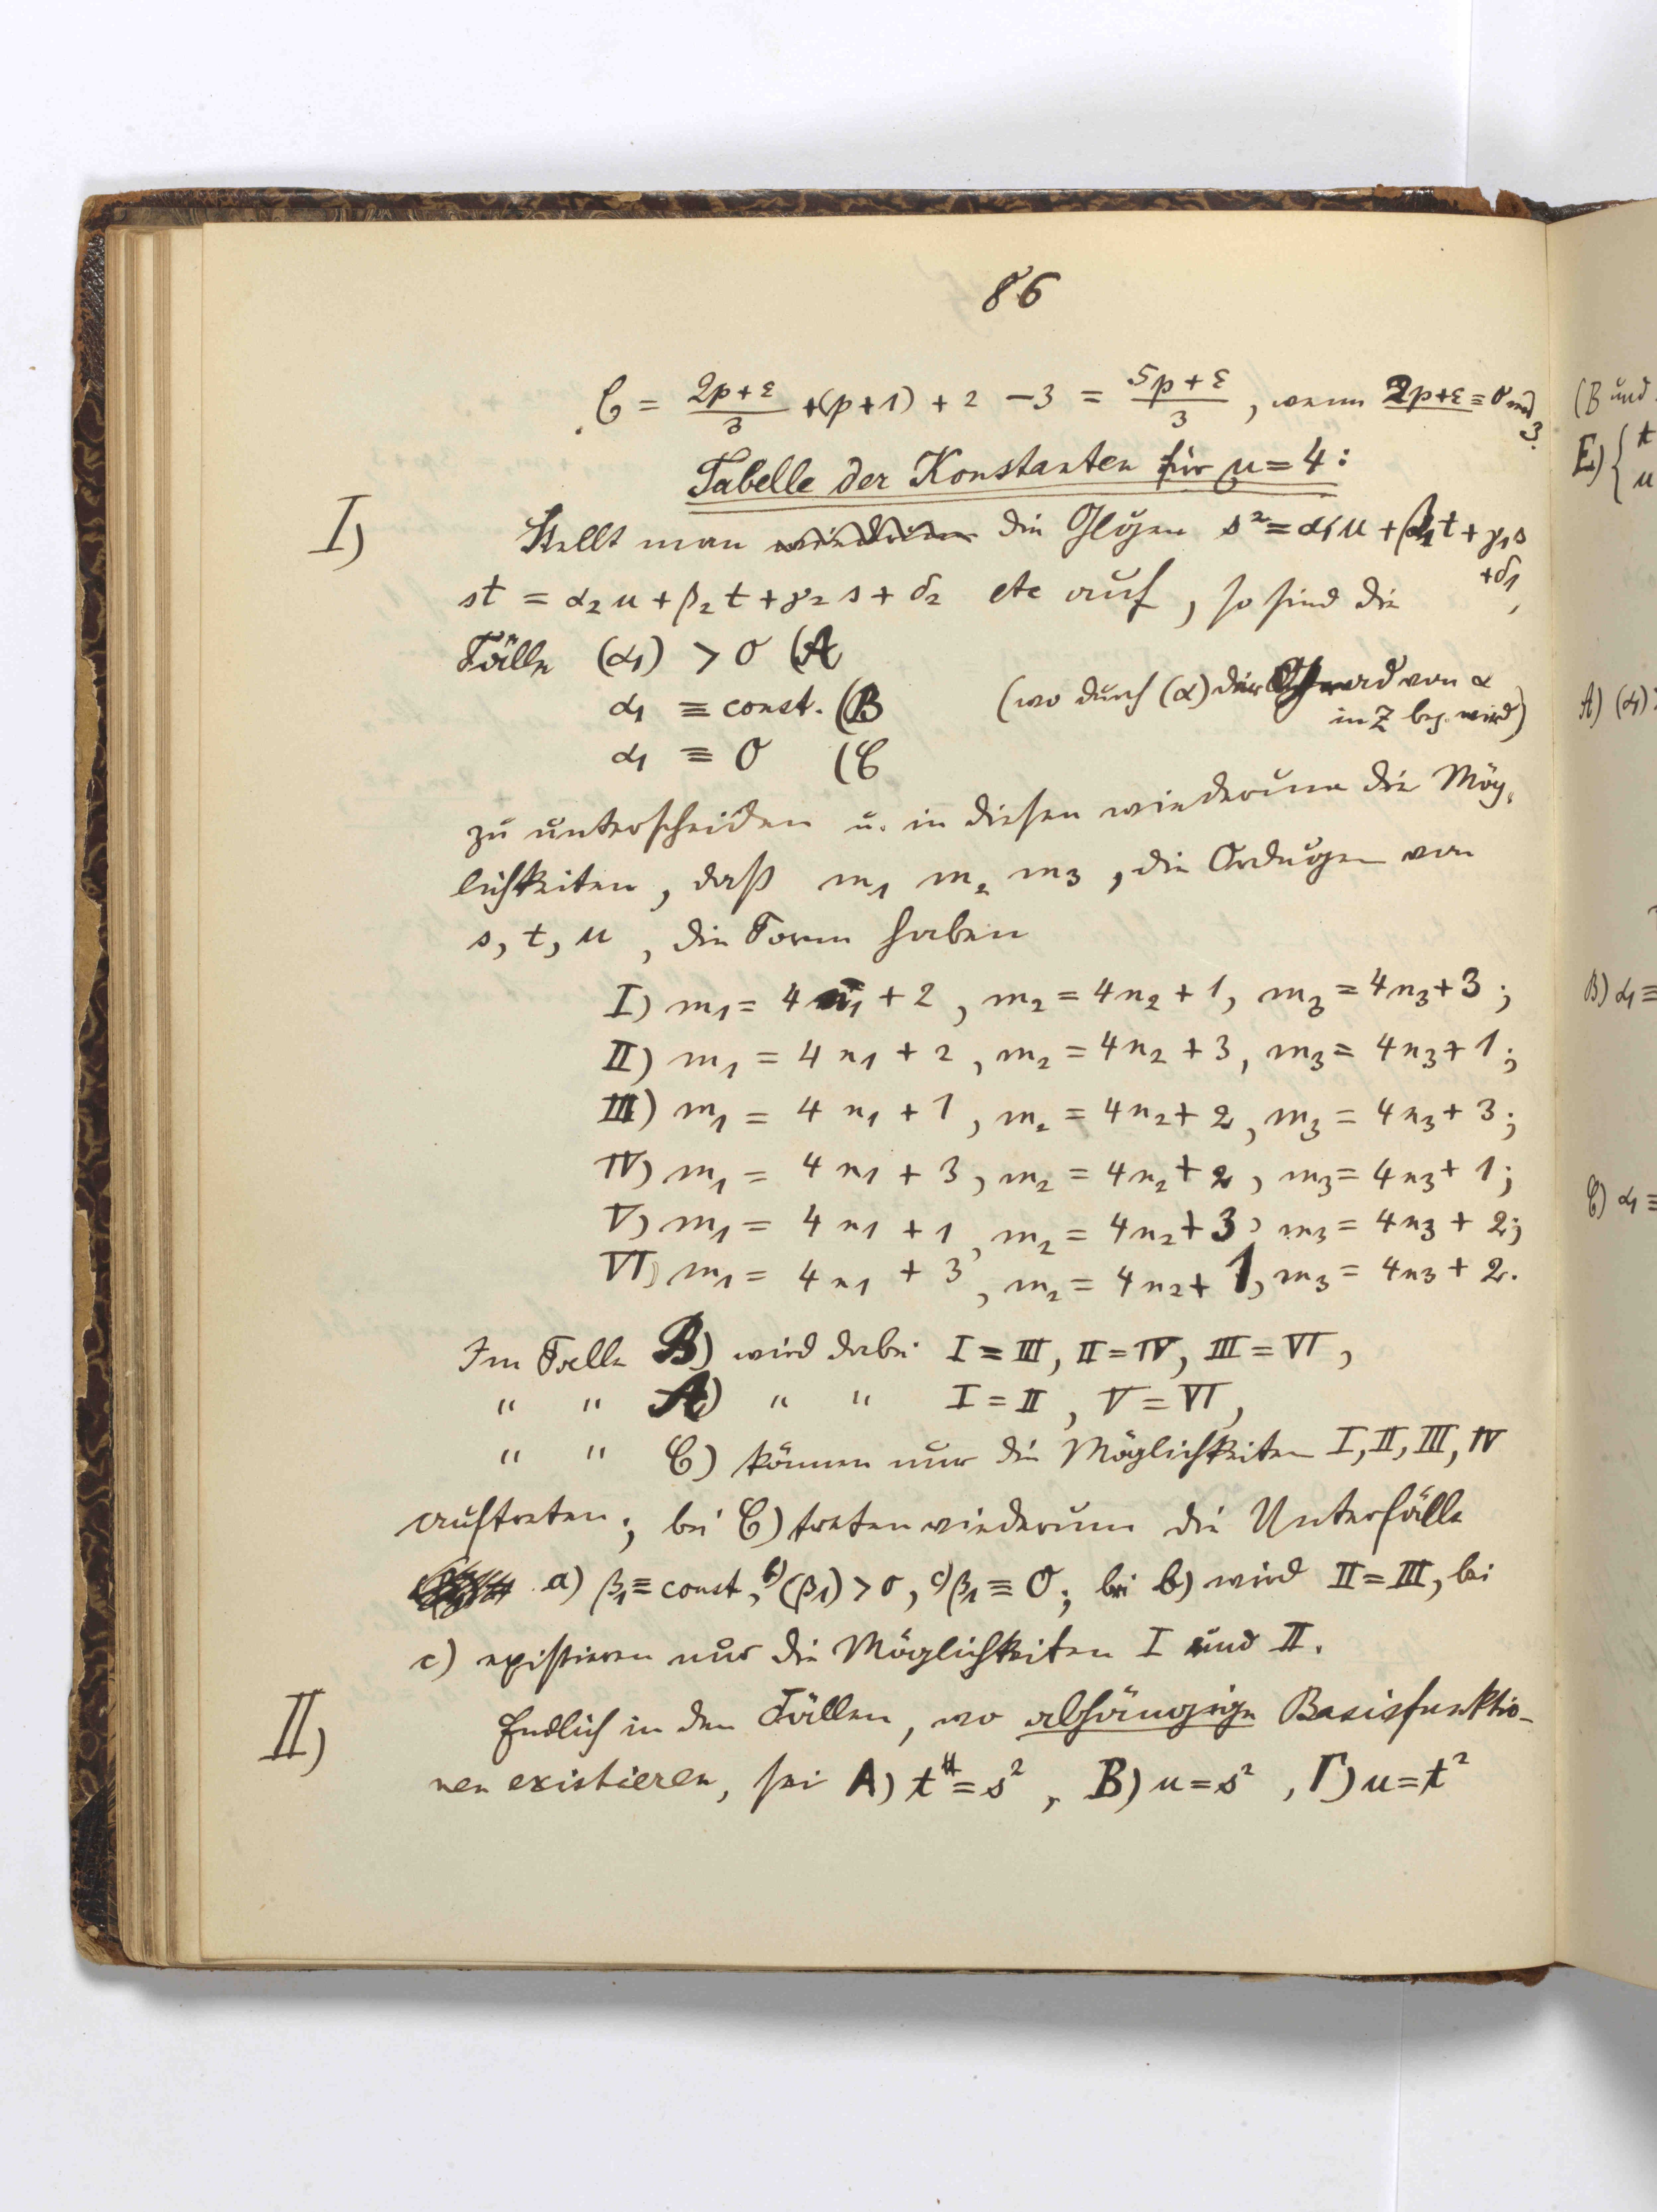 86
C = (2p+ε)/3 + (p+1) + 2 − 3 = (5p+ε)/3, wenn 2p+ε ≡ 0 mod 3.
Tabelle der Konstanten für μ = 4:
I) Stellt man die Glgen s² = α₁u + β₁t + γ₁s + δ₁,
st = α₂u + β₂t + γ₂s + δ₂ etc auf, so sind die
Fälle (α₁) > 0 (A
α₁ ≡ const. (B (wo durch (α) der Grad von α
α₁ ≡ 0 (C in z bez. wird)
zu unterscheiden u. in diesen wiederum die Mög-
lichkeiten, daß m₁ m₂ m₃, die Ordngen von
s, t, u, die Form haben
I) m₁ = 4n₁ + 2, m₂ = 4n₂ + 1, m₃ = 4n₃ + 3;
II) m₁ = 4n₁ + 2, m₂ = 4n₂ + 3, m₃ = 4n₃ + 1;
III) m₁ = 4n₁ + 1, m₂ = 4n₂ + 2, m₃ = 4n₃ + 3;
IV) m₁ = 4n₁ + 3, m₂ = 4n₂ + 2, m₃ = 4n₃ + 1;
V) m₁ = 4n₁ + 1, m₂ = 4n₂ + 3, m₃ = 4n₃ + 2;
VI) m₁ = 4n₁ + 3, m₂ = 4n₂ + 1, m₃ = 4n₃ + 2.
Im Falle B) wird dabei I = III, II = IV, III = VI,
" " A) " " I = II, V = VI,
" " C) können nur die Möglichkeiten I, II, III, IV
auftreten; bei C) treten wiederum die Unterfälle
a) β₁ ≡ const, b) (β₁) > 0, c) β₁ ≡ 0; bei b) wird II = III, bei
c) existieren nur die Möglichkeiten I und II.
II) Endlich in den Fällen, wo abhängige Basisfunktio-
nen existieren, sei A) t = s², B) u = s², Γ) u = t²
(B und
E) { t
u
A) (α₁)
B) α₁ ≡
C) α₁ ≡